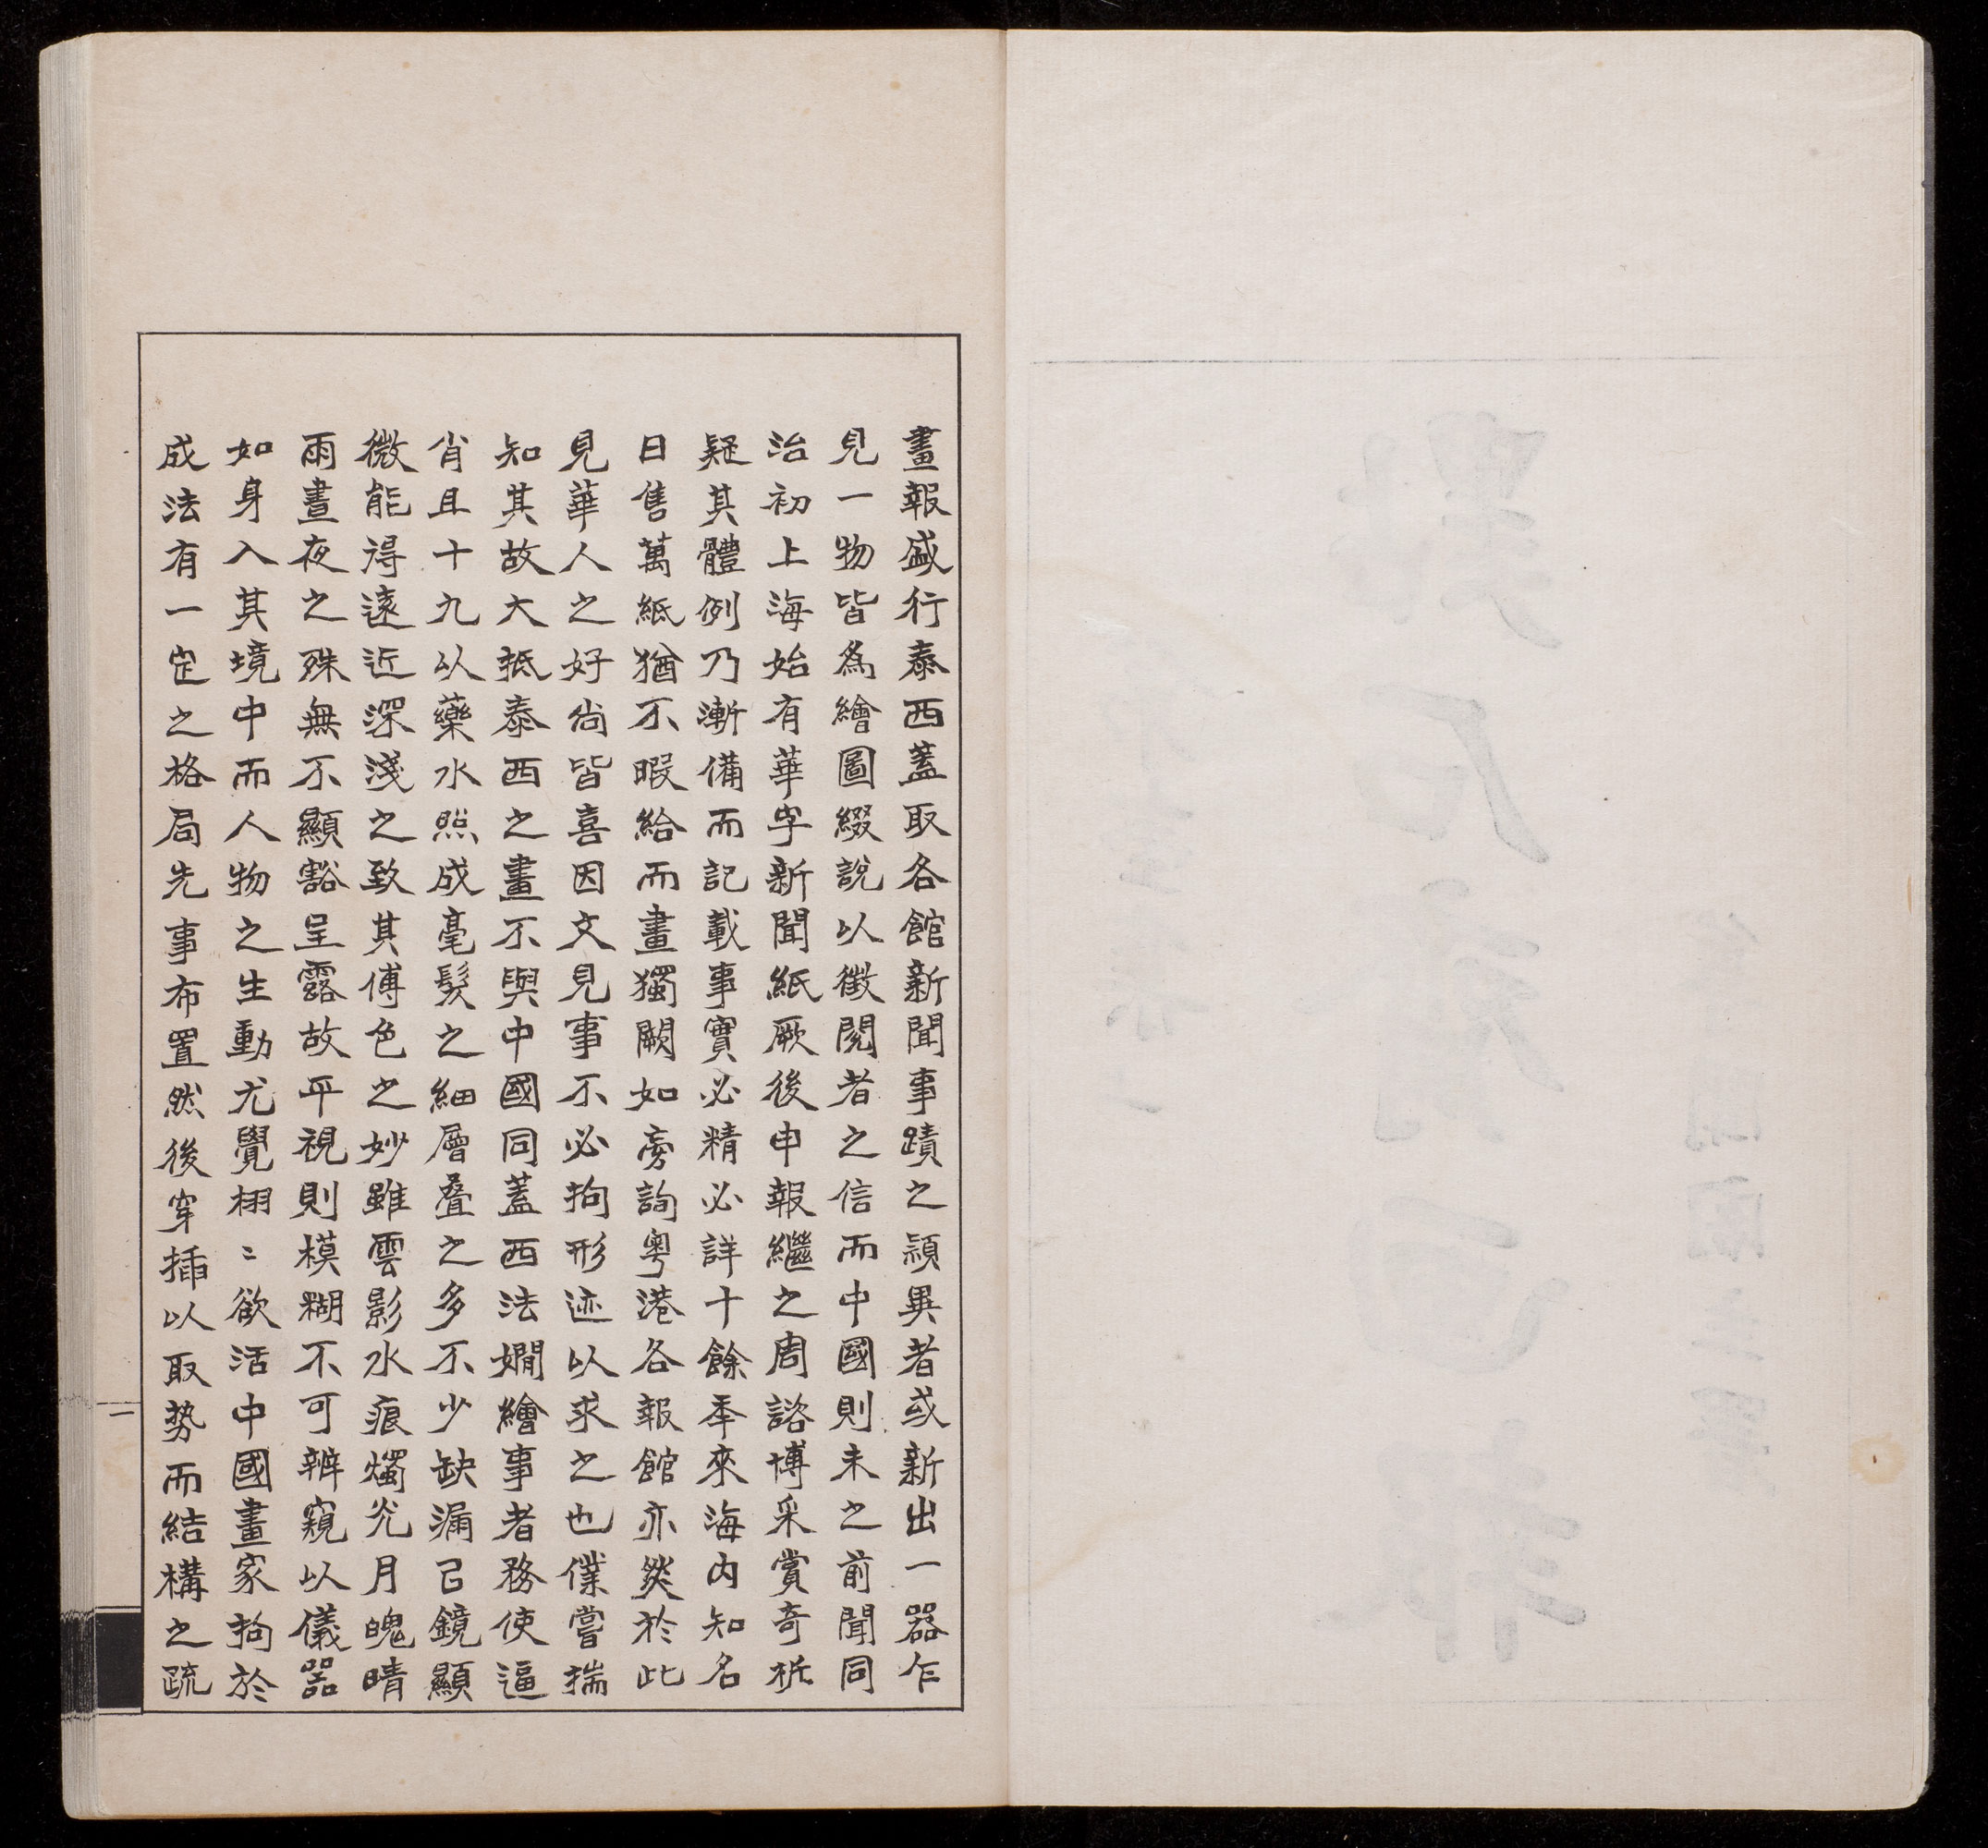 畫報盛行泰西蓋取各館新聞事蹟之頴異者或新出一器乍
見一物皆爲繪圖綴說以徵閱者之信而中國則未之前聞同
治初上海始有華字新聞紙厥後申報繼之周諮博采賞奇析
疑其體例乃漸備而記載事實必精必詳十餘年來海内知名
日售萬紙猶不暇給而畫獨闕如旁詢粤港各報館亦然於此
見華人之好尚皆喜因文見事不必拘形迹以求之也僕嘗揣
知其故大抵泰西之畫不與中國同蓋西法嫺繪事者務使逼
肖且十九以藥水照成毫髮之細層叠之多不少缺漏以鏡顯
微能得遠近深淺之致其傅色之妙雖雲影水痕燭光月魄晴
雨晝夜之殊無不顯豁呈露故平視則模糊不可辨窺以儀器
如身入其境中而人物之生動尤覺栩〻欲活中國畫家拘於
成法有一定之格局先事布置然後穿插以取勢而結構之疏
一